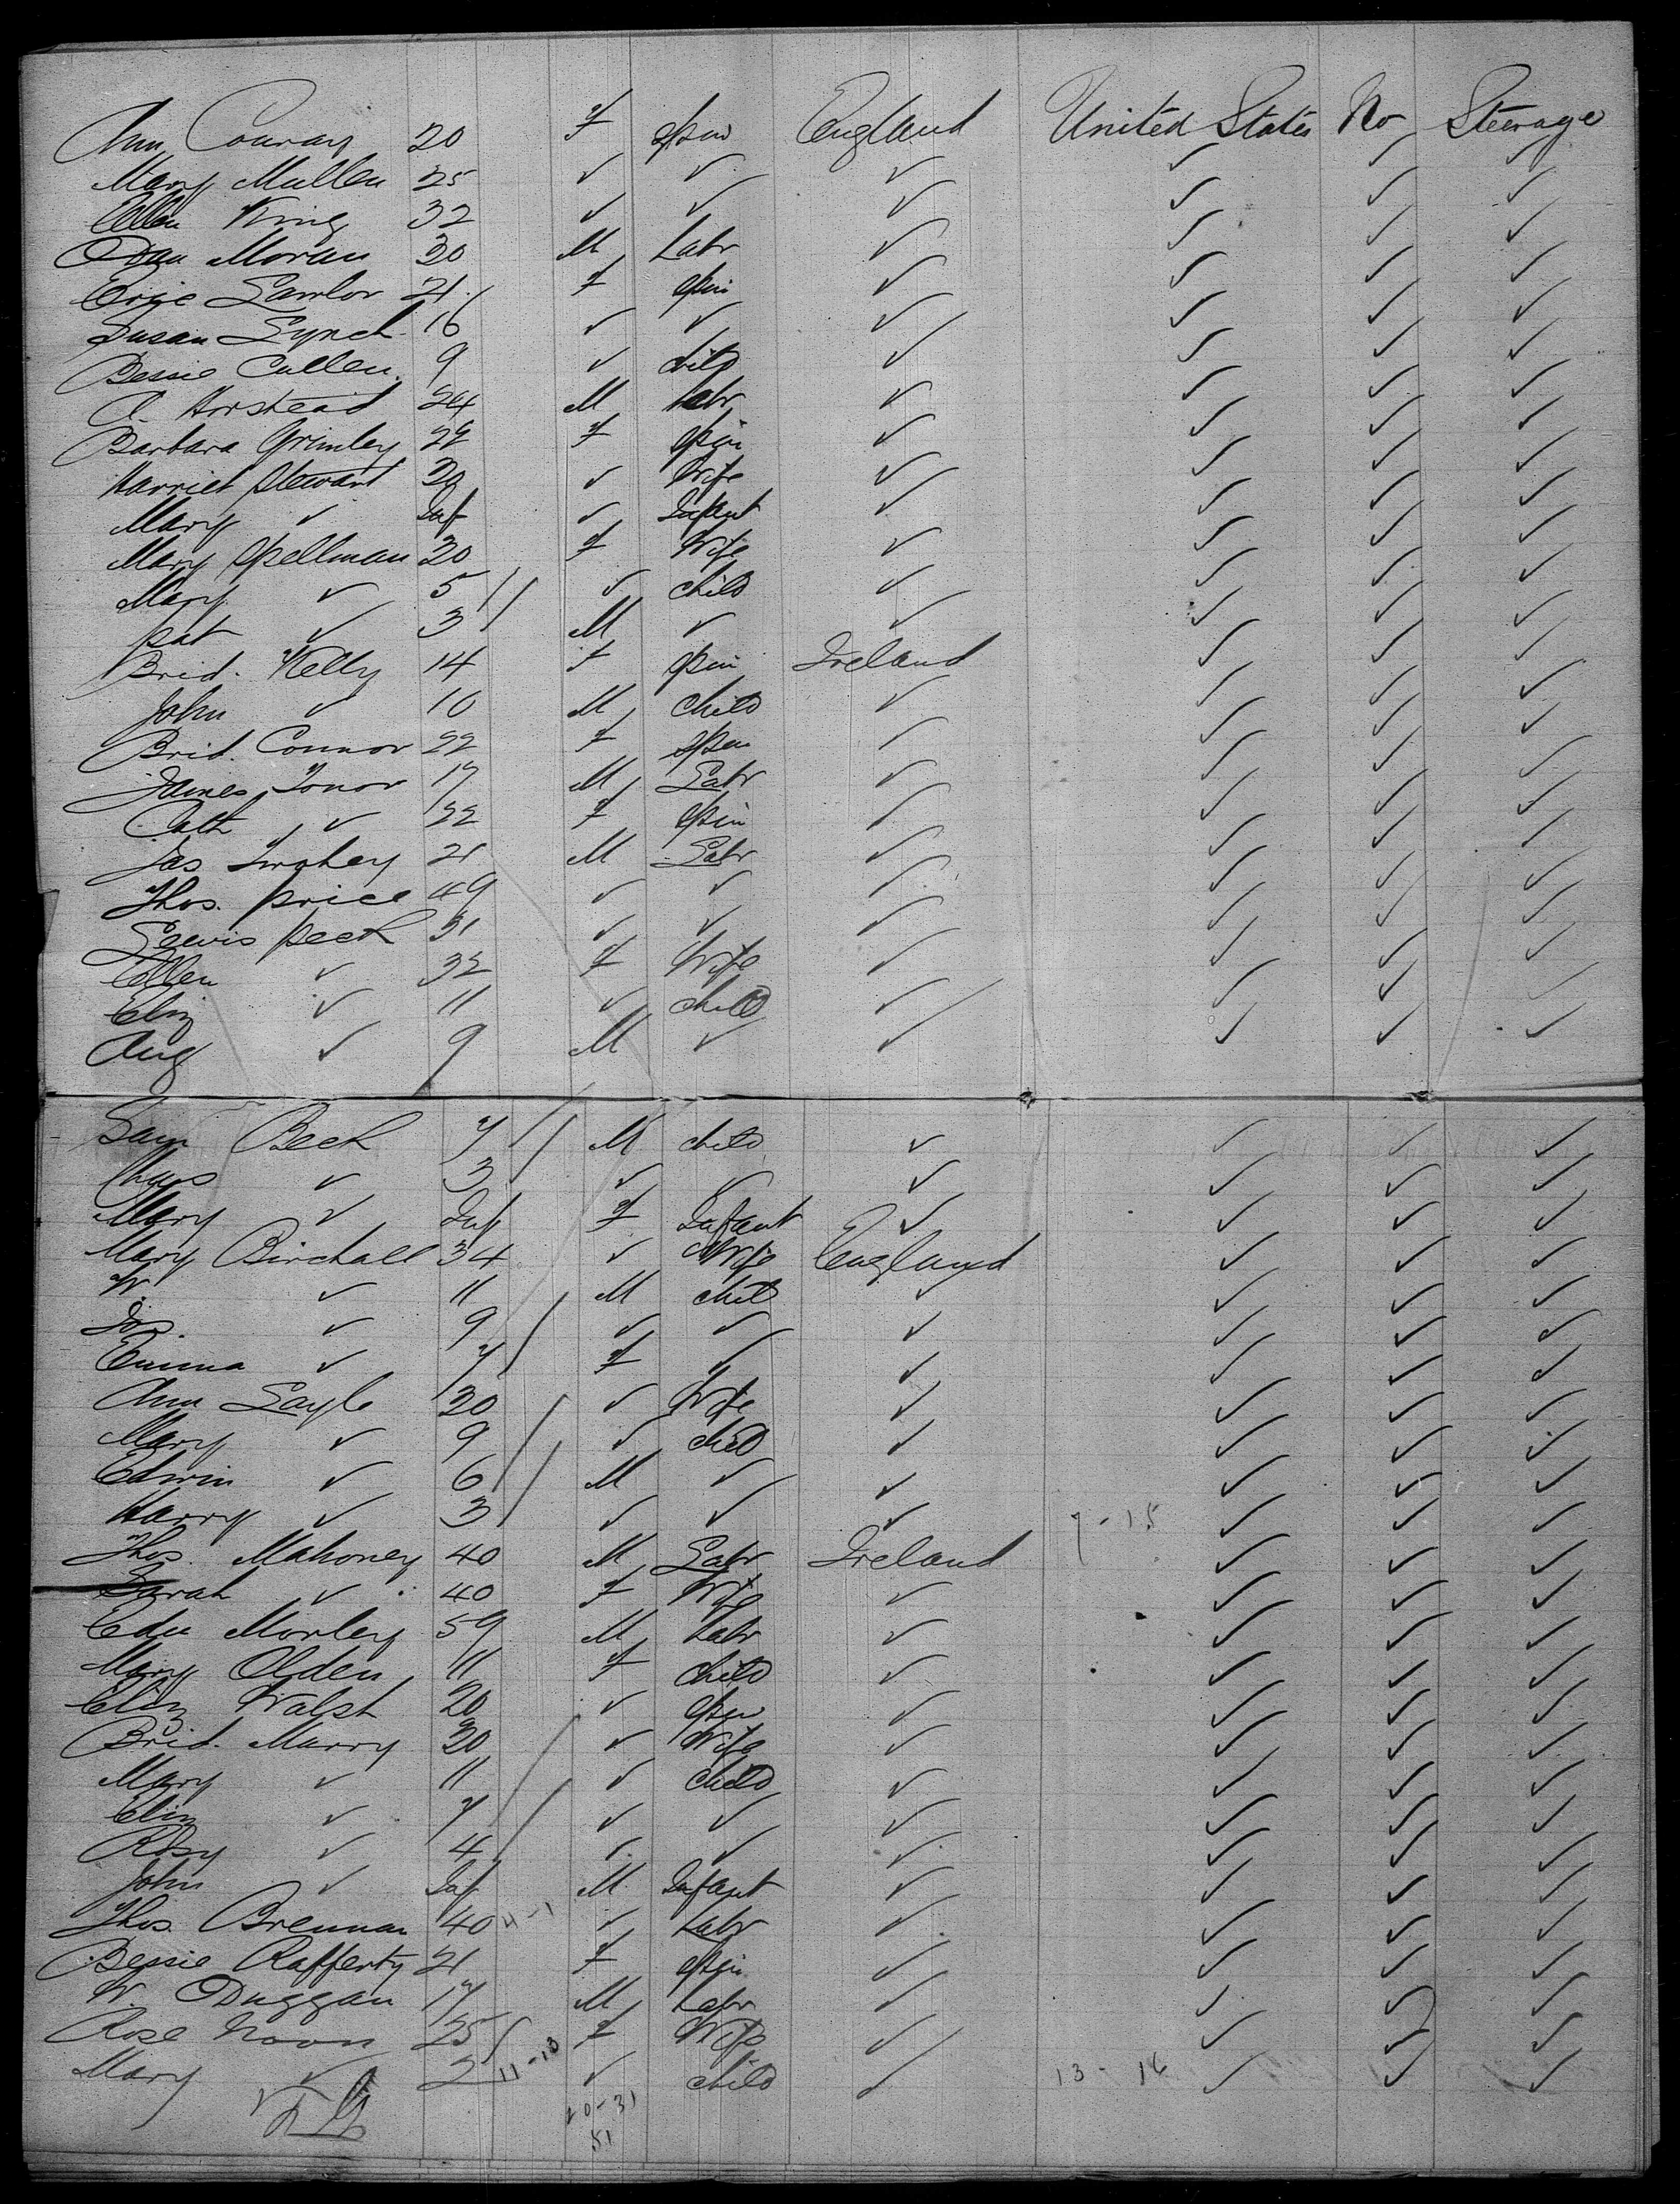 Ann Conray 20 F Spin England United States No Steerage
Mary Mullen 25 ✓ ✓ ✓ ✓ ✓ ✓
Ellen King 32 ✓ ✓ ✓ ✓ ✓ ✓
Dan Moran 30 M Labr ✓ ✓ ✓ ✓
Lawlor 21 F Spin ✓ ✓ ✓ ✓
Susan Lynch 16 ✓ ✓ ✓ ✓ ✓ ✓
Bessie Cullen 9 ✓ child ✓ ✓ ✓ ✓
A. Horstead 24 M Labr ✓ ✓ ✓ ✓
Barbara Grimley 22 F Spin ✓ ✓ ✓ ✓
Harriet Stewart 30 ✓ Wife ✓ ✓ ✓ ✓
Mary ✓ Inf ✓ Infant ✓ ✓ ✓ ✓
Mary Spellman 30 F Wife ✓ ✓ ✓ ✓
Mary ✓ 5 ✓ child ✓ ✓ ✓ ✓
Pat ✓ 3 M ✓ ✓ ✓ ✓ ✓
Brid. Kelly 14 F Spin Ireland ✓ ✓ ✓
John ✓ 10 M Child ✓ ✓ ✓ ✓
Brid. Connor 22 F Spin ✓ ✓ ✓ ✓
James Tonor 17 M Labr ✓ ✓ ✓ ✓
Cath ✓ 22 F Spin ✓ ✓ ✓ ✓
Jas 21 M Labr ✓ ✓ ✓ ✓
Thos. Price 49 ✓ ✓ ✓ ✓ ✓ ✓
Lewis Peck 31 ✓ ✓ ✓ ✓ ✓ ✓
Ellen ✓ 32 F Wife ✓ ✓ ✓ ✓
Eliz ✓ 11 ✓ child ✓ ✓ ✓ ✓
Aug ✓ 9 M ✓ ✓ ✓ ✓ ✓
Sam Beck 7 M child ✓ ✓ ✓ ✓
Chas ✓ 3 ✓ ✓ ✓ ✓ ✓ ✓
Mary ✓ Inf F Infant ✓ ✓ ✓ ✓
Mary Birchall 34 ✓ Wife England ✓ ✓ ✓
W. ✓ 11 M child ✓ ✓ ✓ ✓
Jos. ✓ 9 ✓ ✓ ✓ ✓ ✓ ✓
Emma ✓ 7 F ✓ ✓ ✓ ✓ ✓
Ann Sayle 30 ✓ Wife ✓ ✓ ✓ ✓
Mary ✓ 9 ✓ child ✓ ✓ ✓ ✓
Edwin ✓ 6 M ✓ ✓ ✓ ✓ ✓
Harry ✓ 3 ✓ ✓ ✓ 7-15 ✓ ✓ ✓
Thos. Mahoney 40 M Labr Ireland ✓ ✓ ✓
Sarah ✓ 40 F Wife ✓ ✓ ✓ ✓
Edw Morley 59 M Labr ✓ ✓ ✓ ✓
Mary Olden 11 F child ✓ ✓ ✓ ✓
Eliz Walsh 20 ✓ Spin ✓ ✓ ✓ ✓
Brid. Murry 30 ✓ Wife ✓ ✓ ✓ ✓
Mary ✓ 11 ✓ child ✓ ✓ ✓ ✓
Eliz ✓ 7 ✓ ✓ ✓ ✓ ✓ ✓
Rosy ✓ 4 ✓ ✓ ✓ ✓ ✓ ✓
John ✓ Inf M Infant ✓ ✓ ✓ ✓
Thos. Brennan 40 4-1 ✓ Labr ✓ ✓ ✓ ✓
Bessie Rafferty 21 F Spin ✓ ✓ ✓ ✓
W. Duggan 17 M Labr ✓ ✓ ✓ ✓
Rose Noon 25 F Wife ✓ ✓ ✓ ✓
Mary ✓ 2 11-10 ✓ child ✓ 13-14 ✓ ✓ ✓
20-31
51